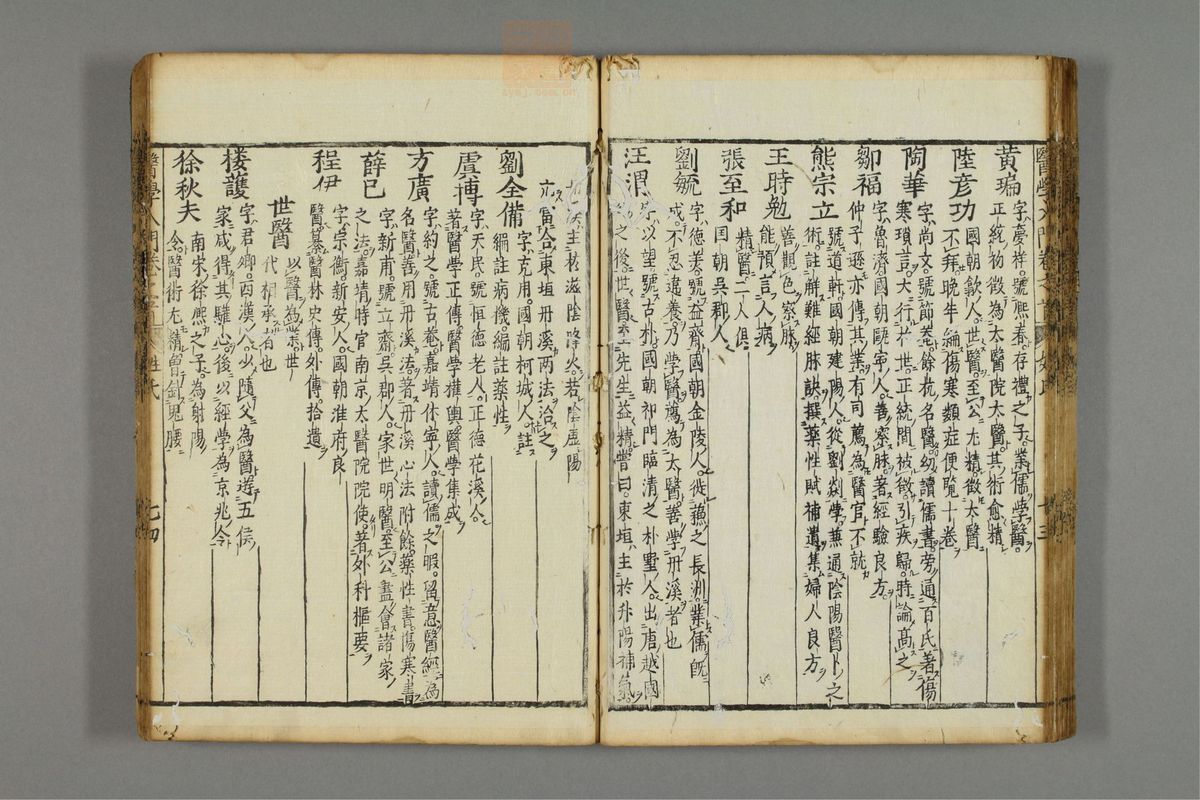 黃瑞
字慶祥。號熙春。存禮之子。業儒學醫。
正統初徵為太醫院太醫。其術愈精
陸彦功
國朝歙人。世醫。至公尤精。徵太醫
不拜。晚年編傷寒類症便覽十卷
陶華
字尚文。號節菴。餘杭名醫。幼讀儒書。旁通百氏。著傷
寒瑣言。大行於世。正統間被徵。引疾歸。時論高之
鄒福
字魯濟。國朝甌寧人。善察脉。著經驗良方。
仲子遜亦傳其業。有司薦為醫官不就
熊宗立
號道軒。國朝建陽人。從劉剡學。兼通陰陽醫卜之
術。註觧難經脉訣。撰藥性賦補遺。集婦人良方。
王時勉
善觀色察脉。
能預言人病
張至和
精醫二人俱
囯朝吳郡人
劉毓
字德美。號益齋。國朝金陵人。徙蘇之長洲。業儒。既
成不忍違養。乃學醫。薦為太醫。善學丹溪者也
汪渭
字以望。號古朴。國朝祁門臨清之朴墅人。出唐越國
之後。世醫。至先生益精。嘗曰。東垣主於升陽補氣。
丹溪主於滋陰降火。若陰虛陽
亢。當合東垣丹溪兩法治之
劉全備
字克用。國朝柯城人。註
編註病機。編註藥性
盧摶
字天民。號恒德老人。正德花溪人。
著醫學正傳。醫學權輿。醫學集成
方廣
字約之。號古菴。嘉靖休寧人。讀儒之暇。留意醫經。為
名醫。善用丹溪法。著丹溪心法附餘。藥性書。傷寒書
薛已
字新甫。號立齋。吳郡人。家世明醫。至公盡會諸家
之法。嘉靖時官南京太醫院院使。著外科樞要
程伊
字宗衡。新安人。國朝淮府良
醫。纂醫林史傳。外傳。拾遺
世醫
以醫為業。世
代相承者也
樓護
字君卿。丙漢人。少隨父為醫。遊五侯
家。咸得其驩心。後以經學為京兆令
徐秋夫
南宋徐熈之子。為射陽
令。醫術尤精。曾針鬼腰